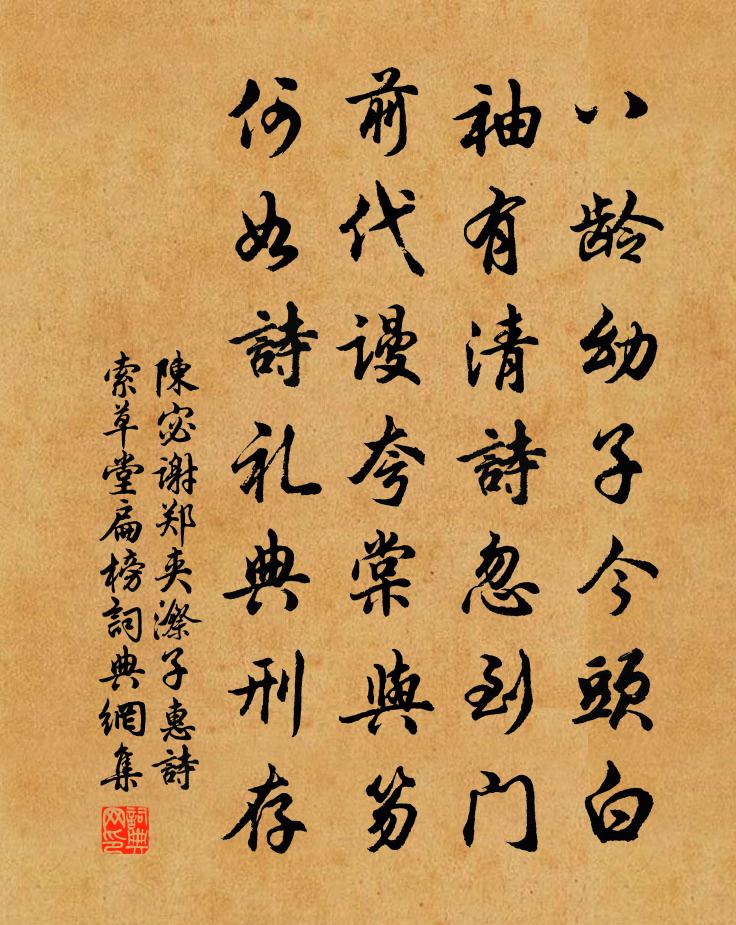 八龄幼子今頭白
袖有清詩忽到門
前代谩夸棠與笏
何如詩礼典刑存
陳宓谢郑夹漈子惠詩
索草堂扁榜詞典網集
詞典
网印